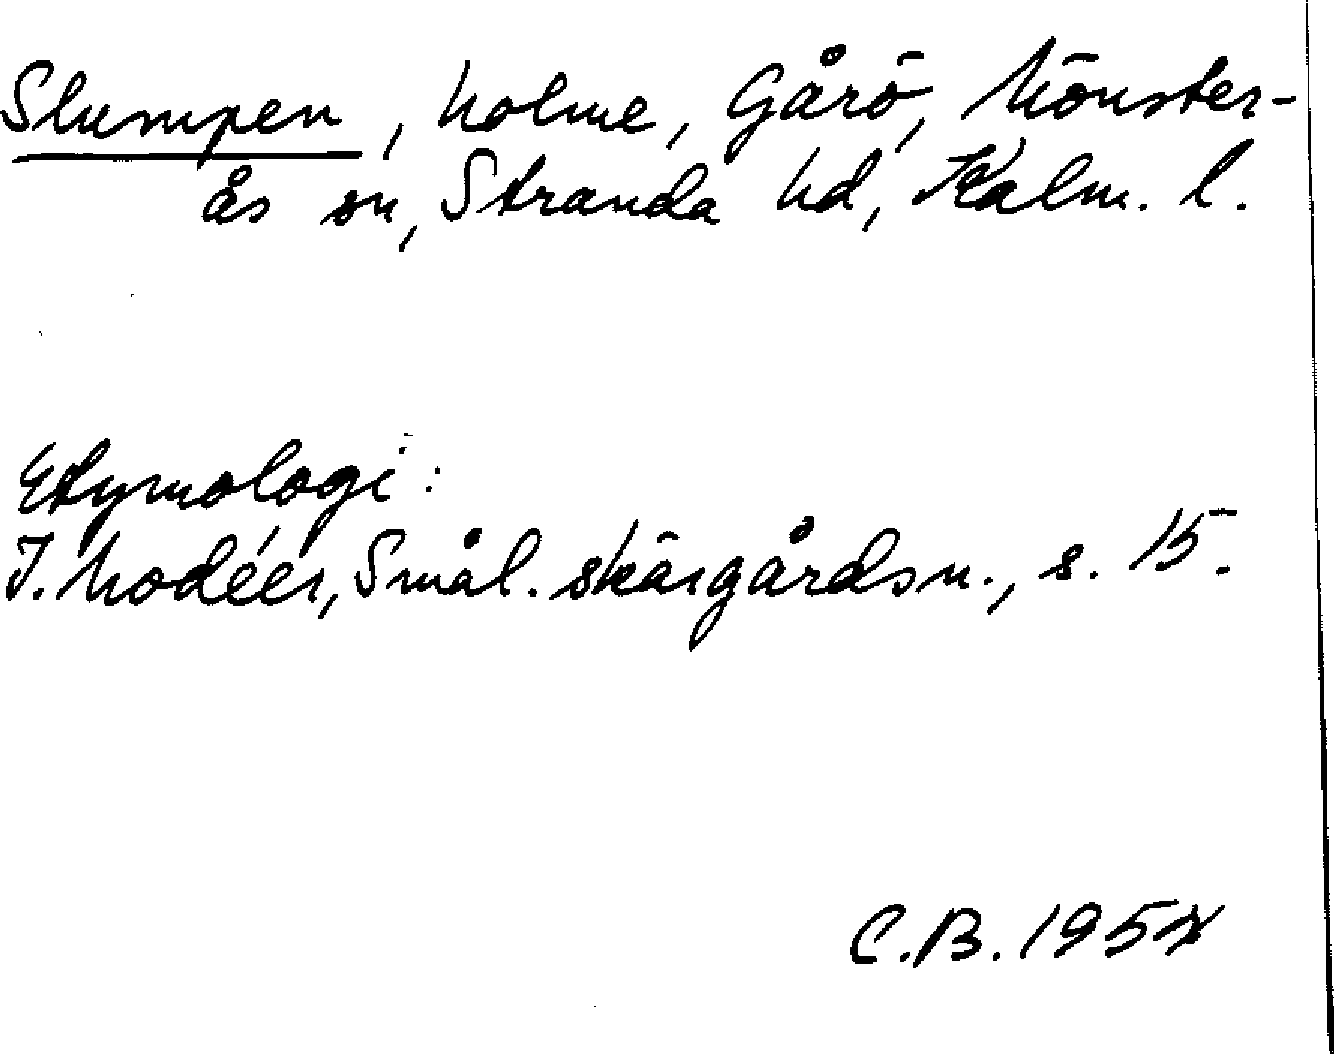 Slumpen, holme, Gårö, Mönster-
ås sn, Stranda hd, Kalm. l.
Etymologi:
I. Modéer, Smål. skärgårdsn., s. 15.
C.B.